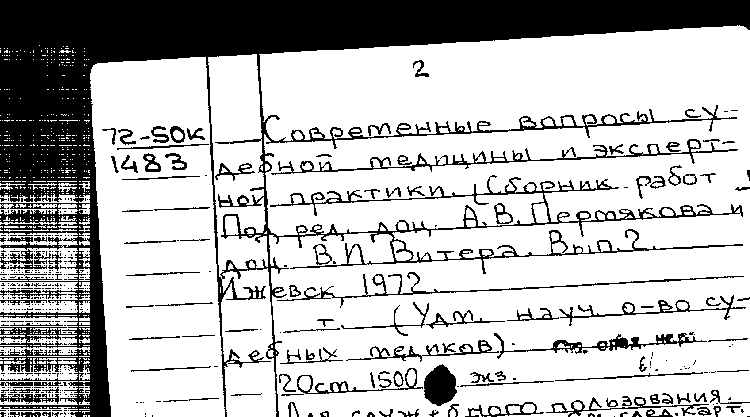 2
72-50к Современные вопросы су-
1483 дебной медицины и эксперт-
ной практики. (Сборник работ
Под ред. доц. А.В. Пермякова и
доц. В.И. Витера. Вып. 2.
Ижевск, 1972.
т. (Удм. науч. о-во су-
дебных медиков).
20см. 1500 экз.
Для служебного пользования